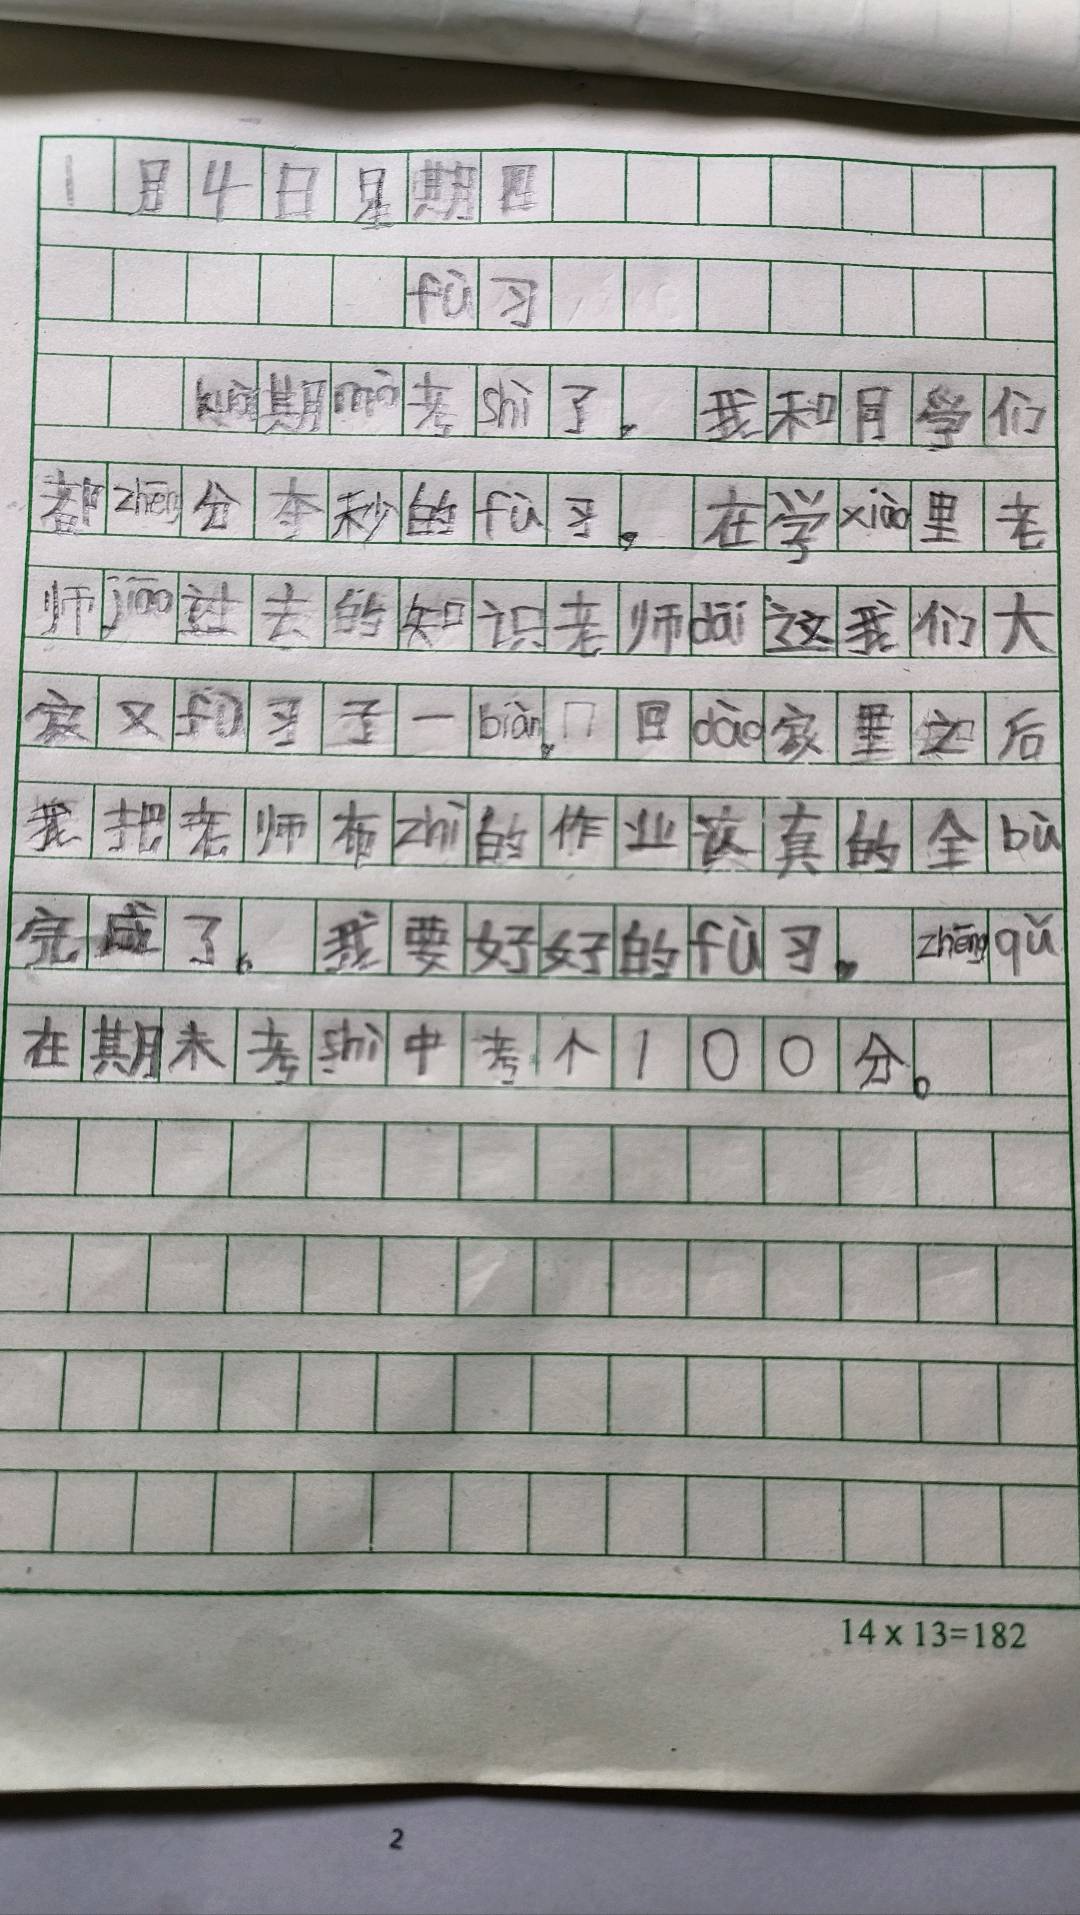 1月4日星期四
fù习
kuài期mò考shì了。我和月学们
都zhēng分夺秒的fù习。在学xiào里老
师jiāo过去的知识老师dài这我们大
家又fù习了一biàn,回dào家里之后
我把老师布zhì的作业认真的全bù
完成了。我要好好的fù习。zhēngqǔ
在期末考shì中考个100分。
14x13=182
2